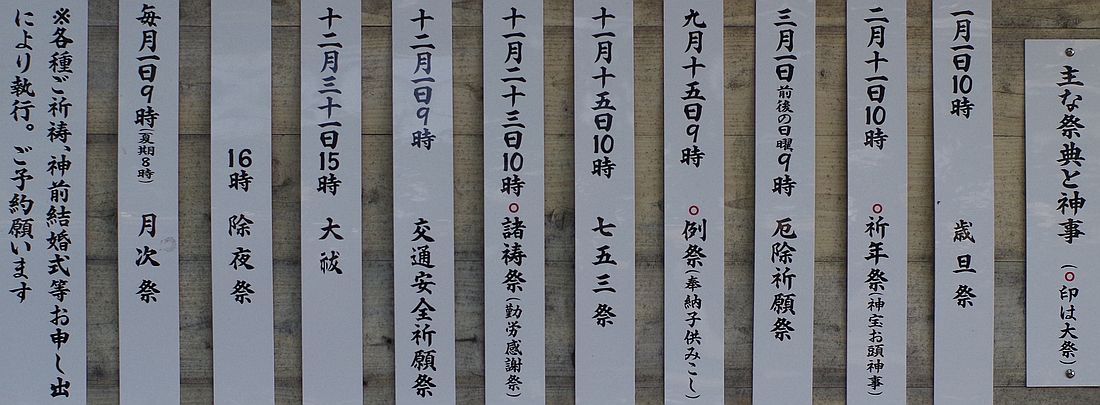 主な祭典と神事 (○印は大祭)
一月一日10時 歳旦祭
二月十一日10時 ○祈年祭(神宝お頭神事)
三月一日前後の日曜9時 厄除祈願祭
九月十五日9時 ○例祭(奉納子供みこし)
十一月十五日10時 七五三祭
十一月二十三日10時 ○諸祷祭(勤労感謝祭)
十二月一日9時 交通安全祈願祭
十二月三十一日15時 大祓
16時 除夜祭
毎月一日9時(夏期8時) 月次祭
※各種ご祈祷、神前結婚式等お申し出
により執行。ご予約願います